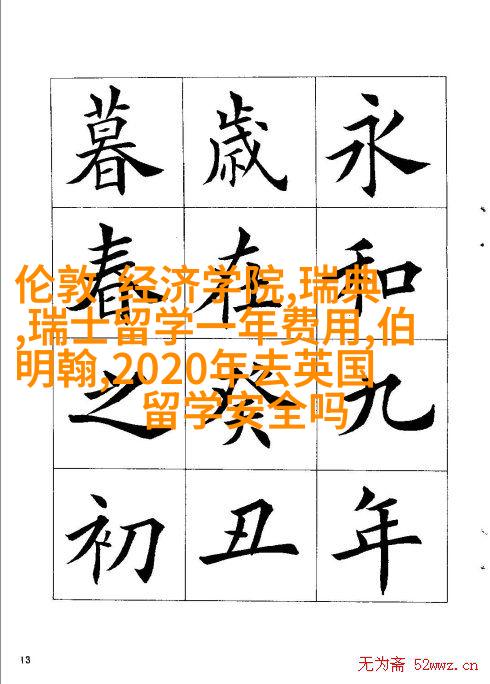 永和九年
歳在癸丑
暮春之初
伦敦 经济学院,瑞典
,瑞士留学一年费用,伯
明翰,2020年去英国
留学安全吗
13
无为斋 52wwz.cn